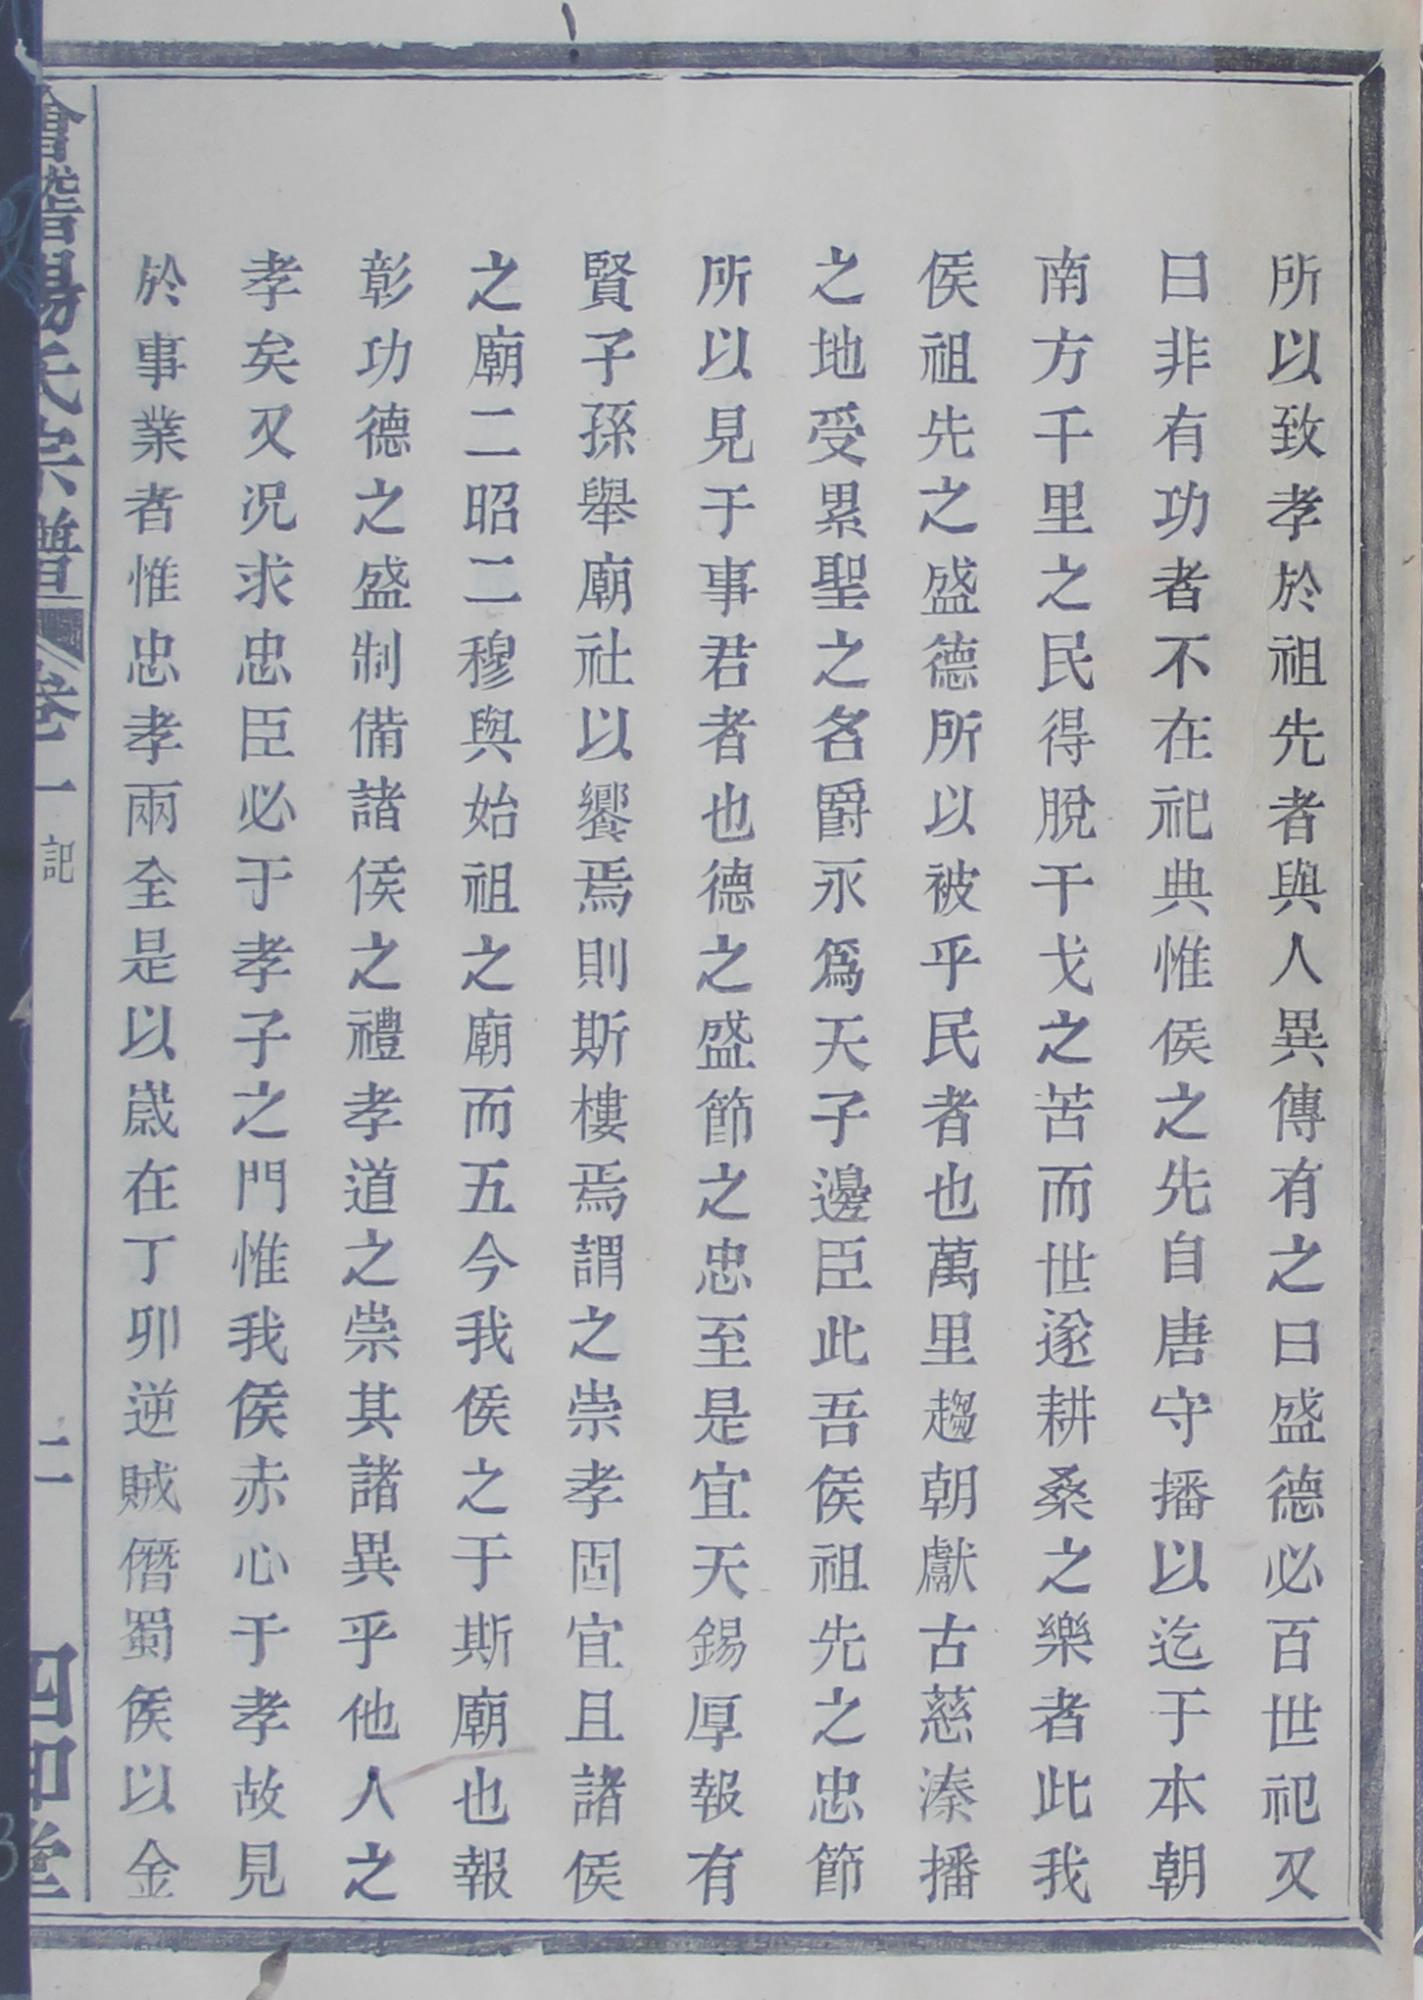 所以致孝於祖先者與人異傳有之曰盛德必百世祀又
曰非有功者不在祀典惟侯之先自唐守播以迄于本朝
南方千里之民得脫干戈之苦而世遂耕桑之樂者此我
侯祖先之盛德所以被乎民者也萬里趨朝獻古慈溱播
之地受累聖之名爵永爲天子邊臣此吾侯祖先之忠節
所以見于事君者也德之盛節之忠至是宜天錫厚報有
賢子孫舉廟社以饗焉則斯樓焉謂之崇孝固宜且諸侯
之廟二昭二穆與始祖之廟而五今我侯之于斯廟也報
彰功德之盛制備諸侯之禮孝道之崇其諸異乎他人之
孝矣又况求忠臣必于孝子之門惟我侯赤心于孝故見
於事業者惟忠孝兩全是以歲在丁卯逆賊僭蜀侯以金
會稽楊氏宗譜 卷一 記 二 四知堂